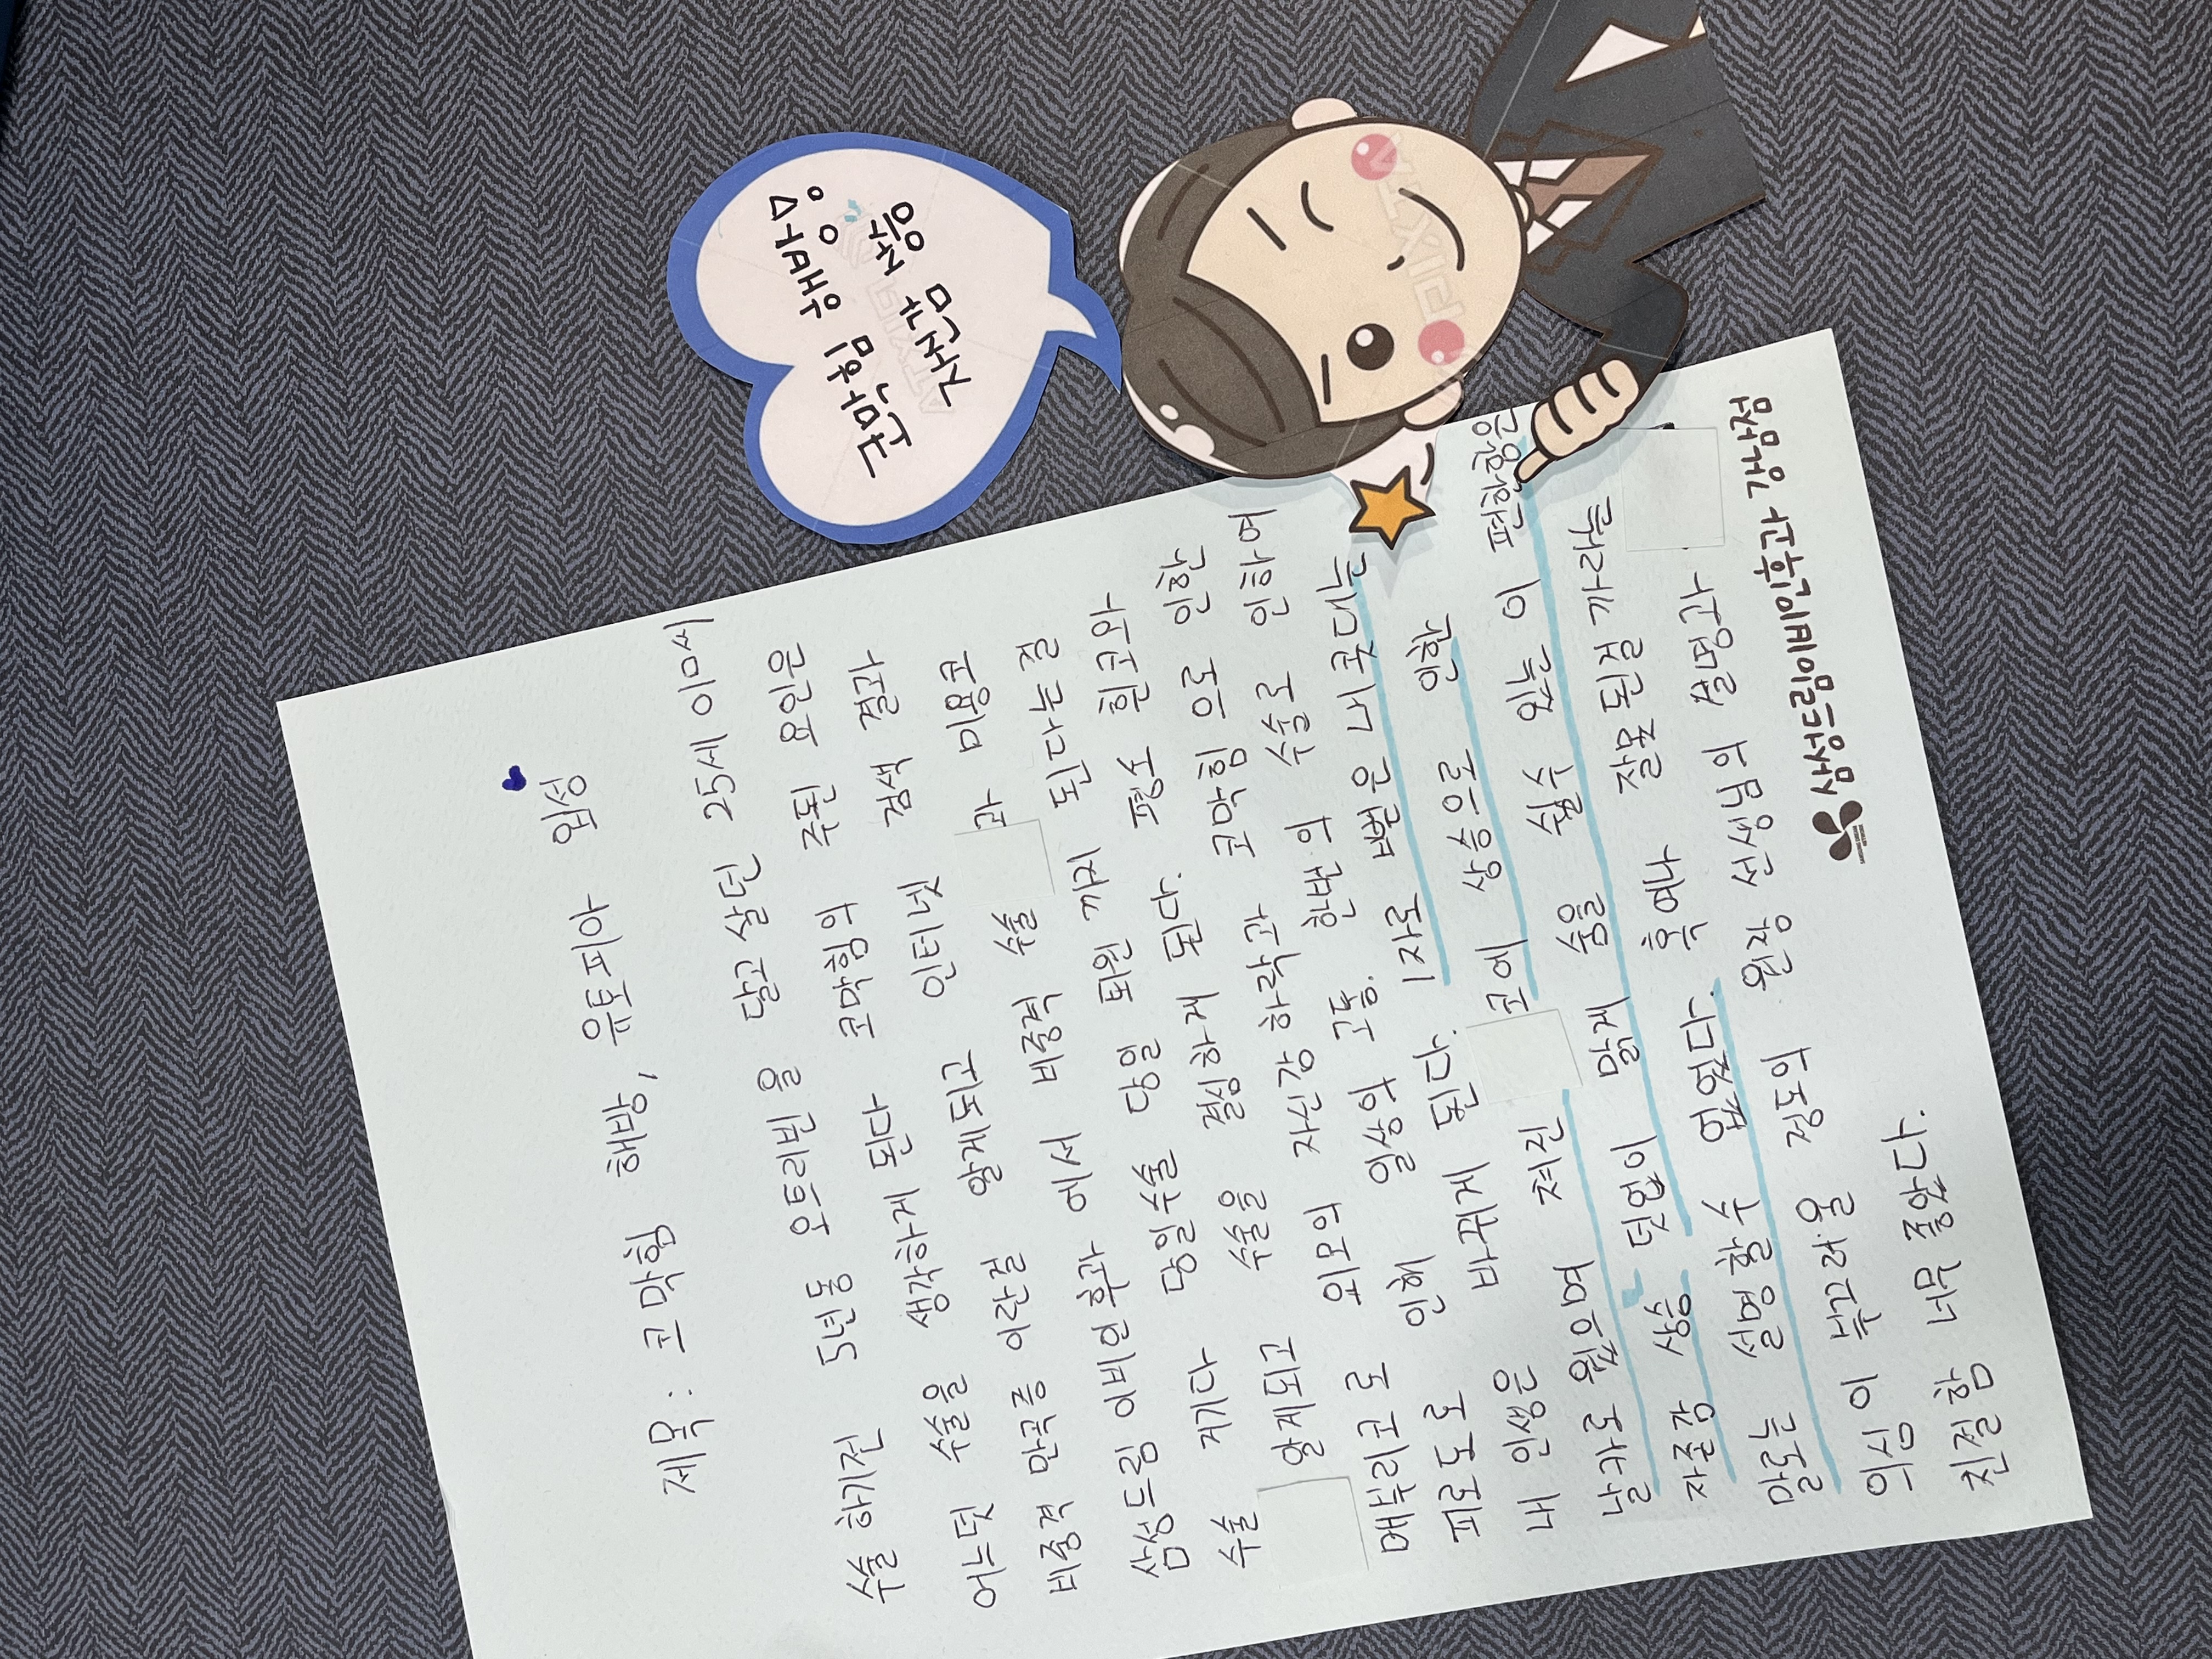 제목 : 코막힘 해방, 유토피아 입성
수술 하기전 5년동 오트리빈 을 달고 살던 25세 이며
어느덧 수술을 생각하게 된다 코막힘의 주된 요인은
비중격 만곡증 이란걸 알게되고 인터넷 검색 결과
삼성드림 이비인후과 에서 비중격 수술 과 미용코
수술 당일수술 당일 퇴원 까지 된다는 걸
알게되고 수술을 결심하게 된다. 평소 휜코와
매부리코 로 외모의 자신감 하락과 코막힘 으로 인한
피로도 로 인해 일상의 고통. 한번의 수술로 인하여
내 인생은 바뀌게 된다. 1자로 뻗은 내 콧대는
날카로 웠으며 쳐진 코에 상승으로 인한
자존감 상승 덧없이 맑게 숨을 쉴수 있는 이
말로는 설명할 수 없었다. 혹여나 잘못된걸
의심이 부끄러울 정도의 원장 선생님의 설명과
친절함 너무 좋았다.
삼성드림이비인후과